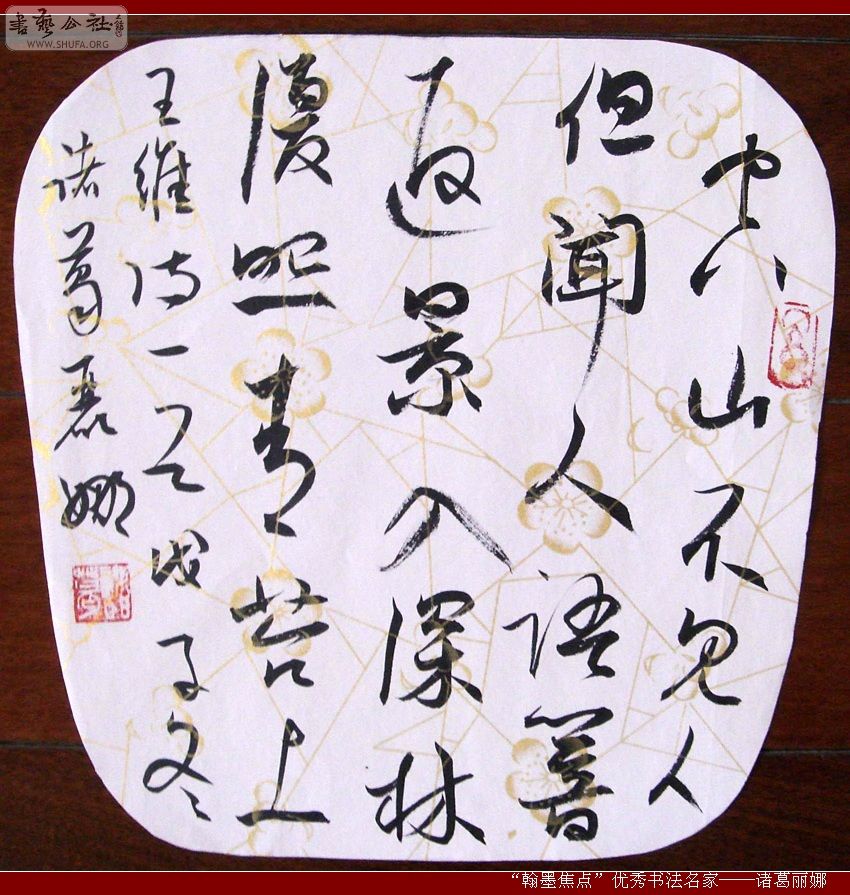 書藝公社
WWW.SHUFA.ORG
空山不見人
但聞人語響
返景入深林
復照青苔上
王維詩一首戊子冬
諸葛麗娜
“翰墨焦点”优秀书法名家——诸葛丽娜